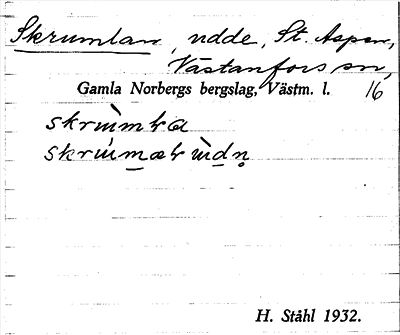 Skrumlan, udde, St. Aspen,
Västanfors sn,
Gamla Norbergs bergslag, Västm. l. 16
H. Ståhl 1932.